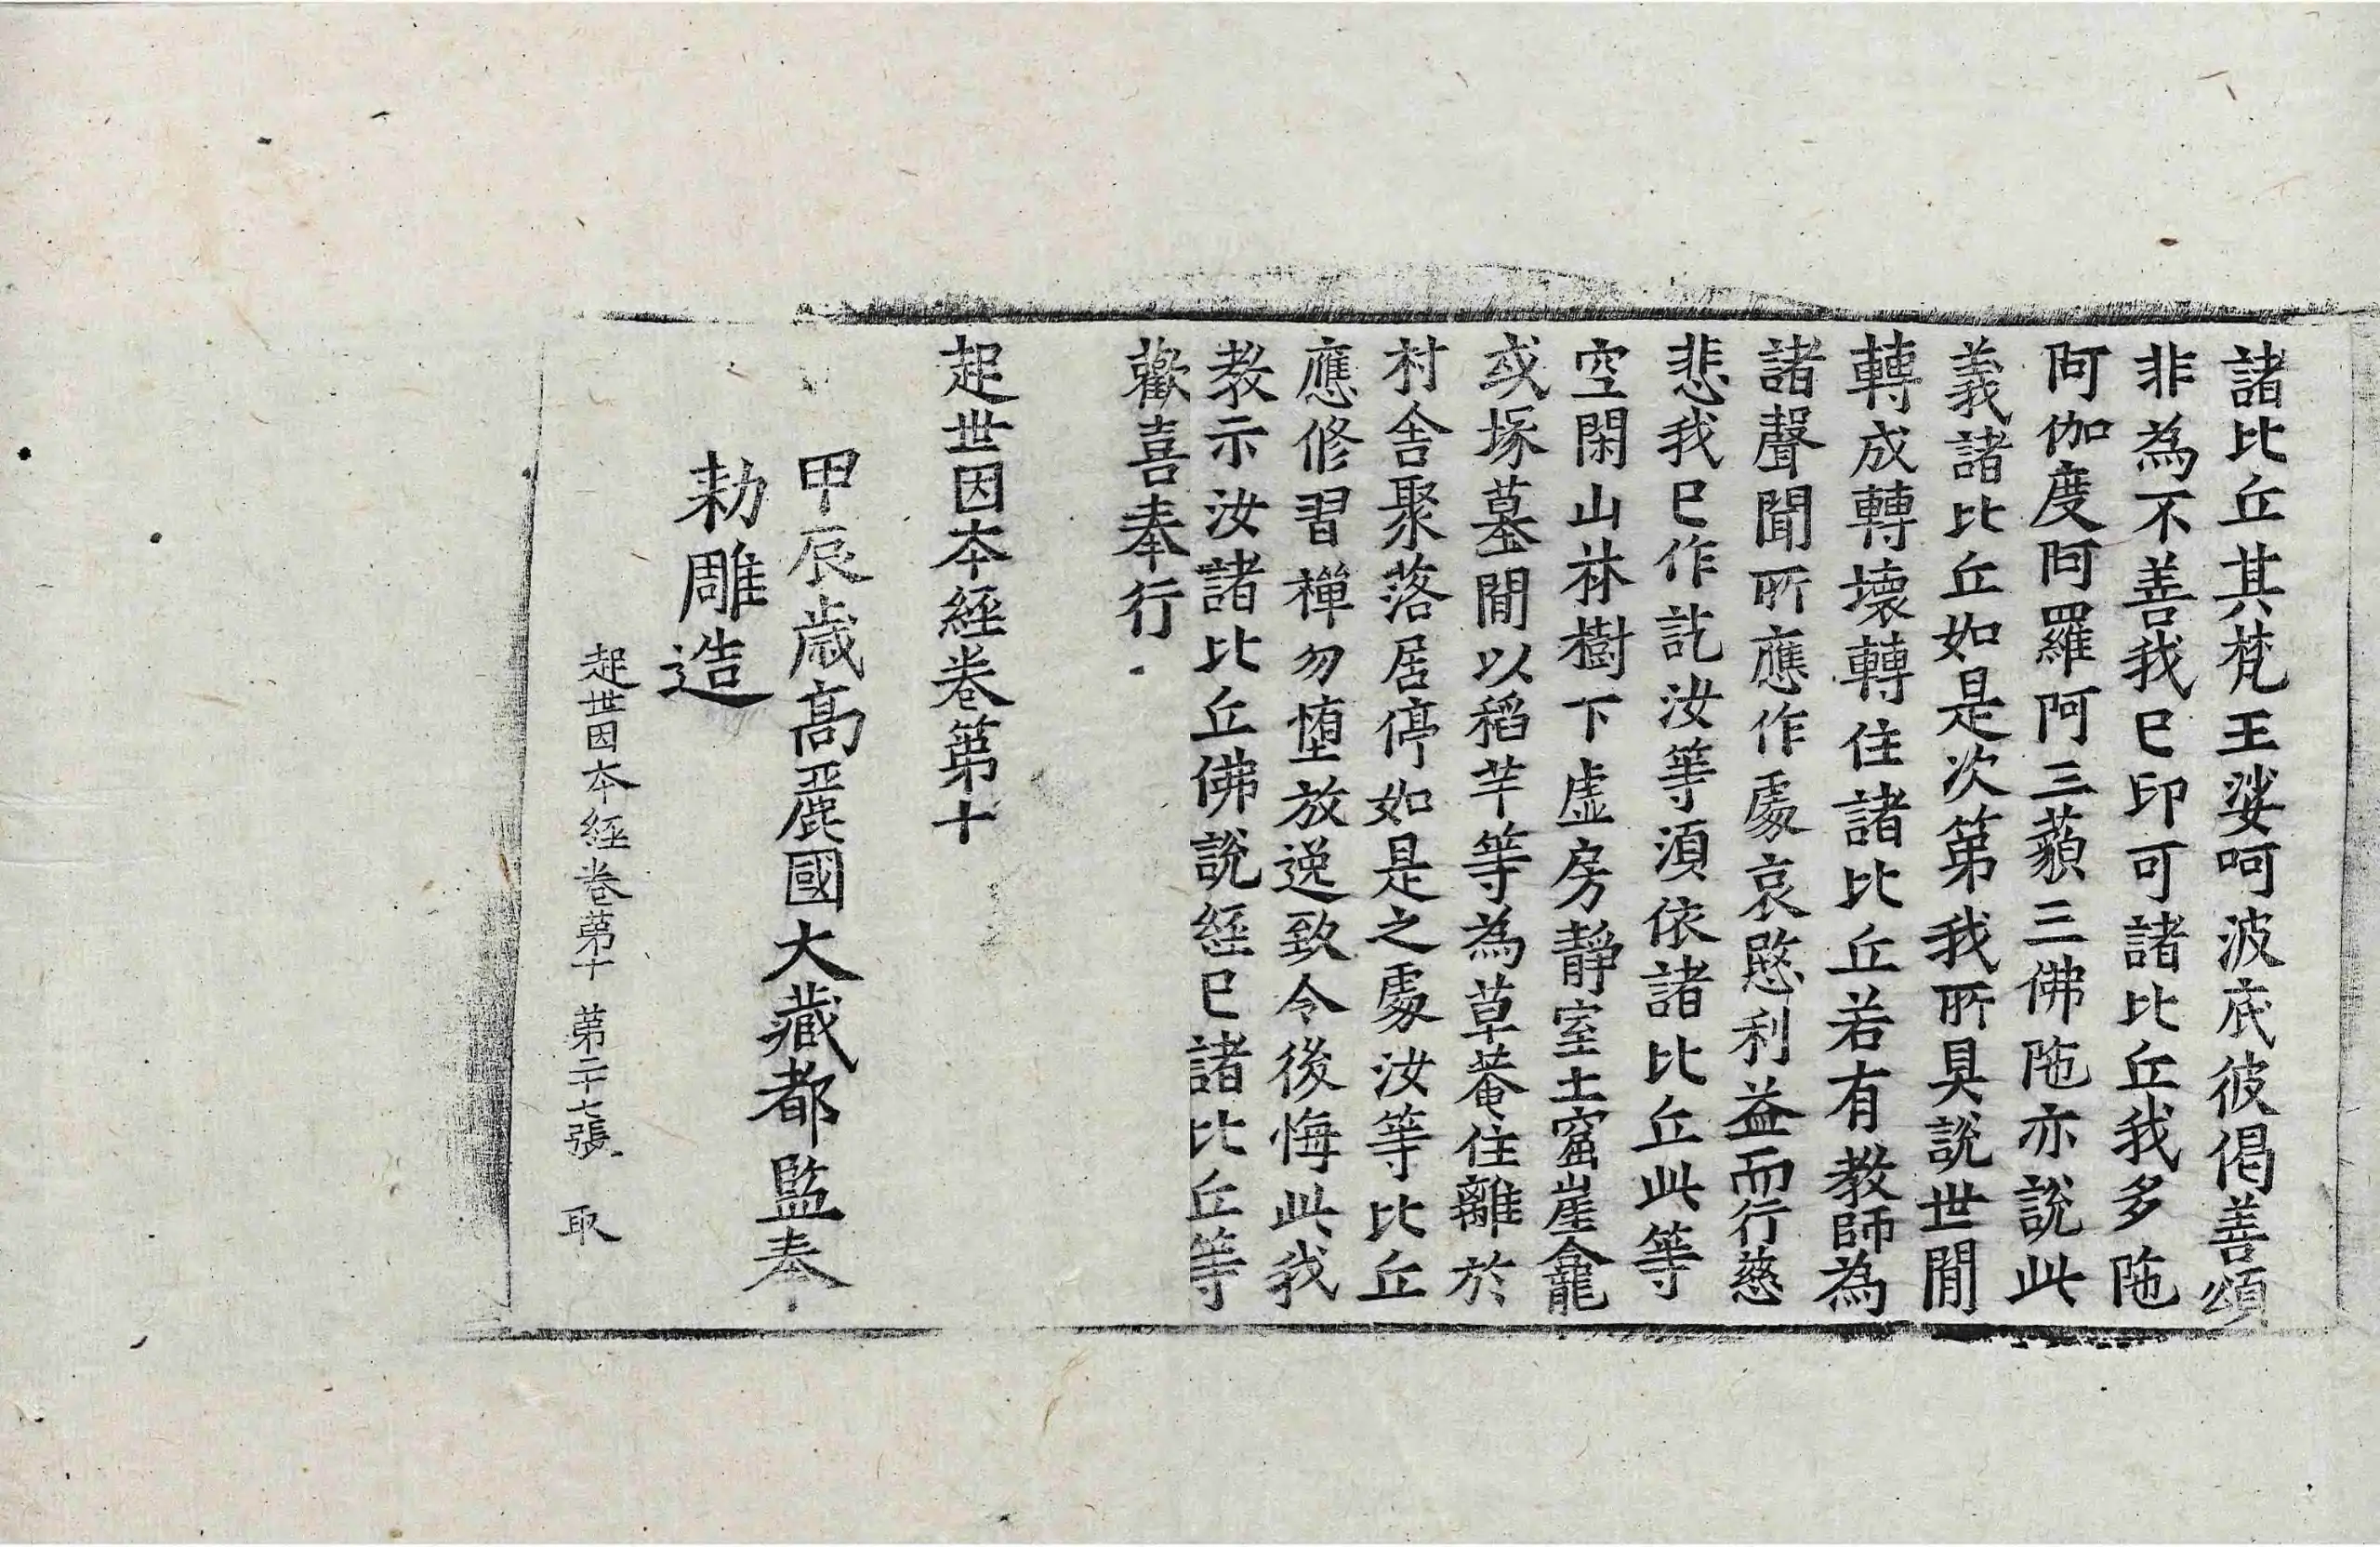 諸比丘其梵王娑呵波底彼偈善頌
非為不善我已印可諸比丘我多陁
阿伽度阿羅阿三藐三佛陁亦說此
義諸比丘如是次第我所具說世間
轉成轉壞轉住諸比丘若有教師為
諸聲聞所應作處哀愍利益而行慈
悲我已作訖汝等湏依諸比丘此等
空閑山林樹下虛房靜室土窟崖龕
或塚墓間以稻芉等為草菴住離於
村舍聚落居停如是之處汝等比丘
應修習禪勿墮放逸致令後悔此我
教示汝諸比丘佛說經已諸比丘等
歡喜奉行
起世因本經卷第十
甲辰歲高麗國大藏都監奉
勅雕造
起世因本經卷第十 第二十七張 取